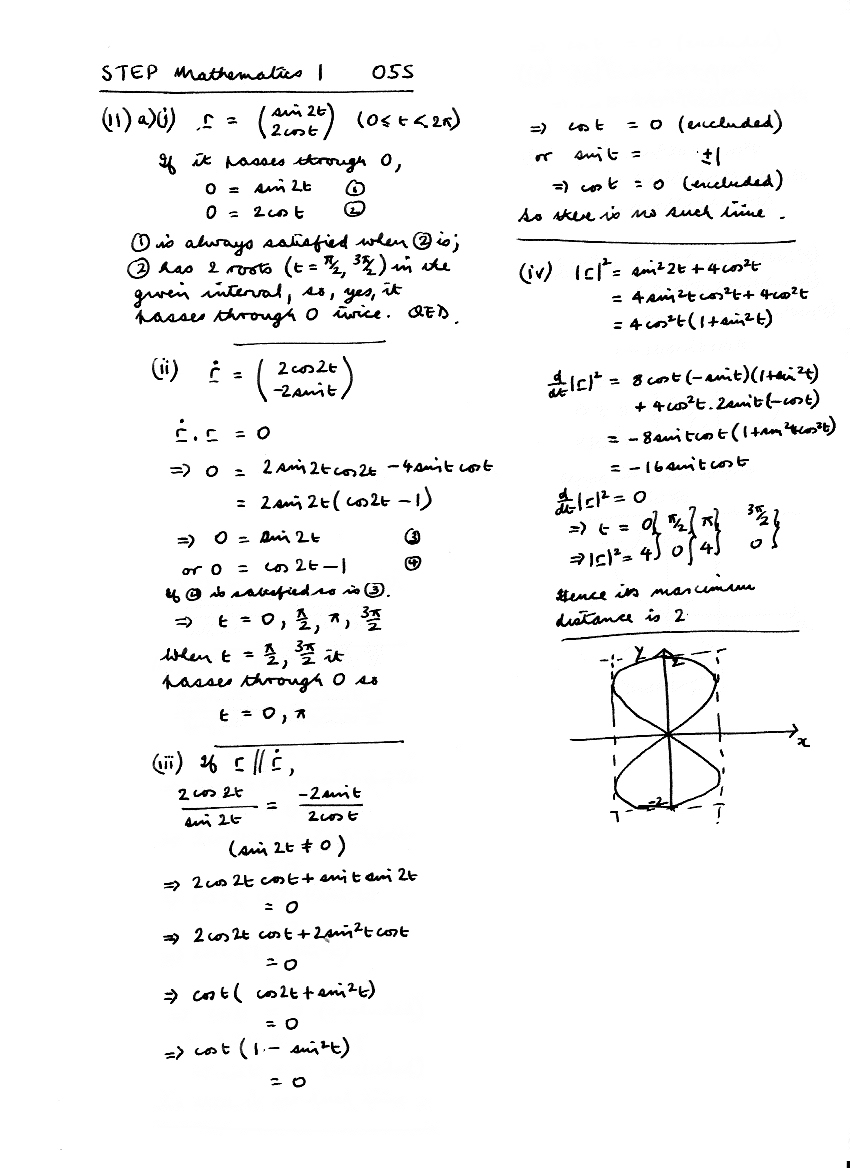 STEP Mathematics 1 05S
(11) a)(i) r = (sin 2t / 2cos t) (0 ≤ t < 2π)
If it passes through O,
0 = sin 2t ①
0 = 2cos t ②
① is always satisfied when ② is;
② has 2 roots (t = π/2, 3π/2) in the
given interval, so, yes, it
passes through O twice. QED.
(ii) ṙ = (2cos2t / -2sin t)
ṙ . r = 0
⇒ 0 = 2sin2tcos2t - 4sin t cos t
= 2sin 2t(cos2t - 1)
⇒ 0 = sin 2t ③
or 0 = cos 2t - 1 ④
If ④ is satisfied so is ③.
⇒ t = 0, π/2, π, 3π/2
When t = π/2, 3π/2 it
passes through O so
t = 0, π
(iii) If r // ṙ,
2cos 2t / sin 2t = -2sin t / 2cos t
(sin 2t ≠ 0)
⇒ 2cos 2t cos t + sin t sin 2t
= 0
⇒ 2cos2t cos t + 2sin²t cos t
= 0
⇒ cos t ( cos2t + sin²t)
= 0
⇒ cos t (1 - sin²t)
= 0
⇒ cos t = 0 (excluded)
or sin t = ±1
⇒ cos t = 0 (excluded)
So there is no such time.
(iv) |r|² = sin²2t + 4cos²t
= 4sin²tcos²t + 4cos²t
= 4cos²t(1+sin²t)
d/dt |r|² = 8cos t(-sin t)(1+sin²t)
+ 4cos²t . 2sin t(-cos t)
= -8sin t cos t(1+sin²t+cos²t)
= -16sin t cos t
d/dt |r|² = 0
⇒ t = 0} π/2} π} 3π/2}
⇒ |r|² = 4} 0} 4} 0}
Hence its maximum
distance is 2
y
2
x
-2
-1
1